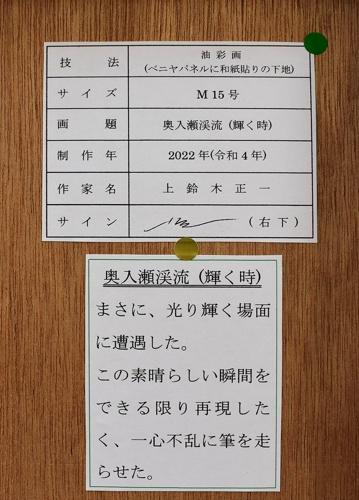 技法 油彩画
(ベニヤパネルに和紙貼りの下地)
サイズ M15号
画題 奥入瀬渓流 (輝く時)
制作年 2022年(令和4年)
作家名 上鈴木正一
サイン (右下)
奥入瀬渓流 (輝く時)
まさに、光り輝く場面
に遭遇した。
この素晴らしい瞬間を
できる限り再現した
く、一心不乱に筆を走
らせた。